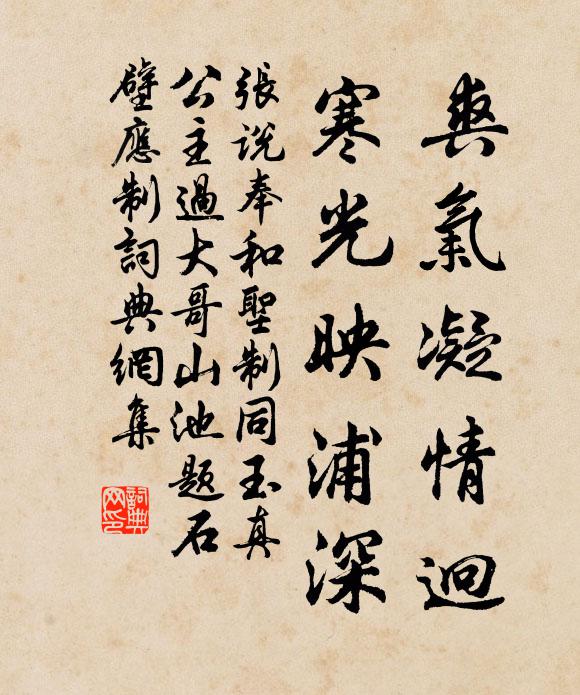 爽氣凝情迥
寒光映浦深
張說奉和聖制同玉真
公主過大哥山池題石
壁應制詞典網集
詞典网印